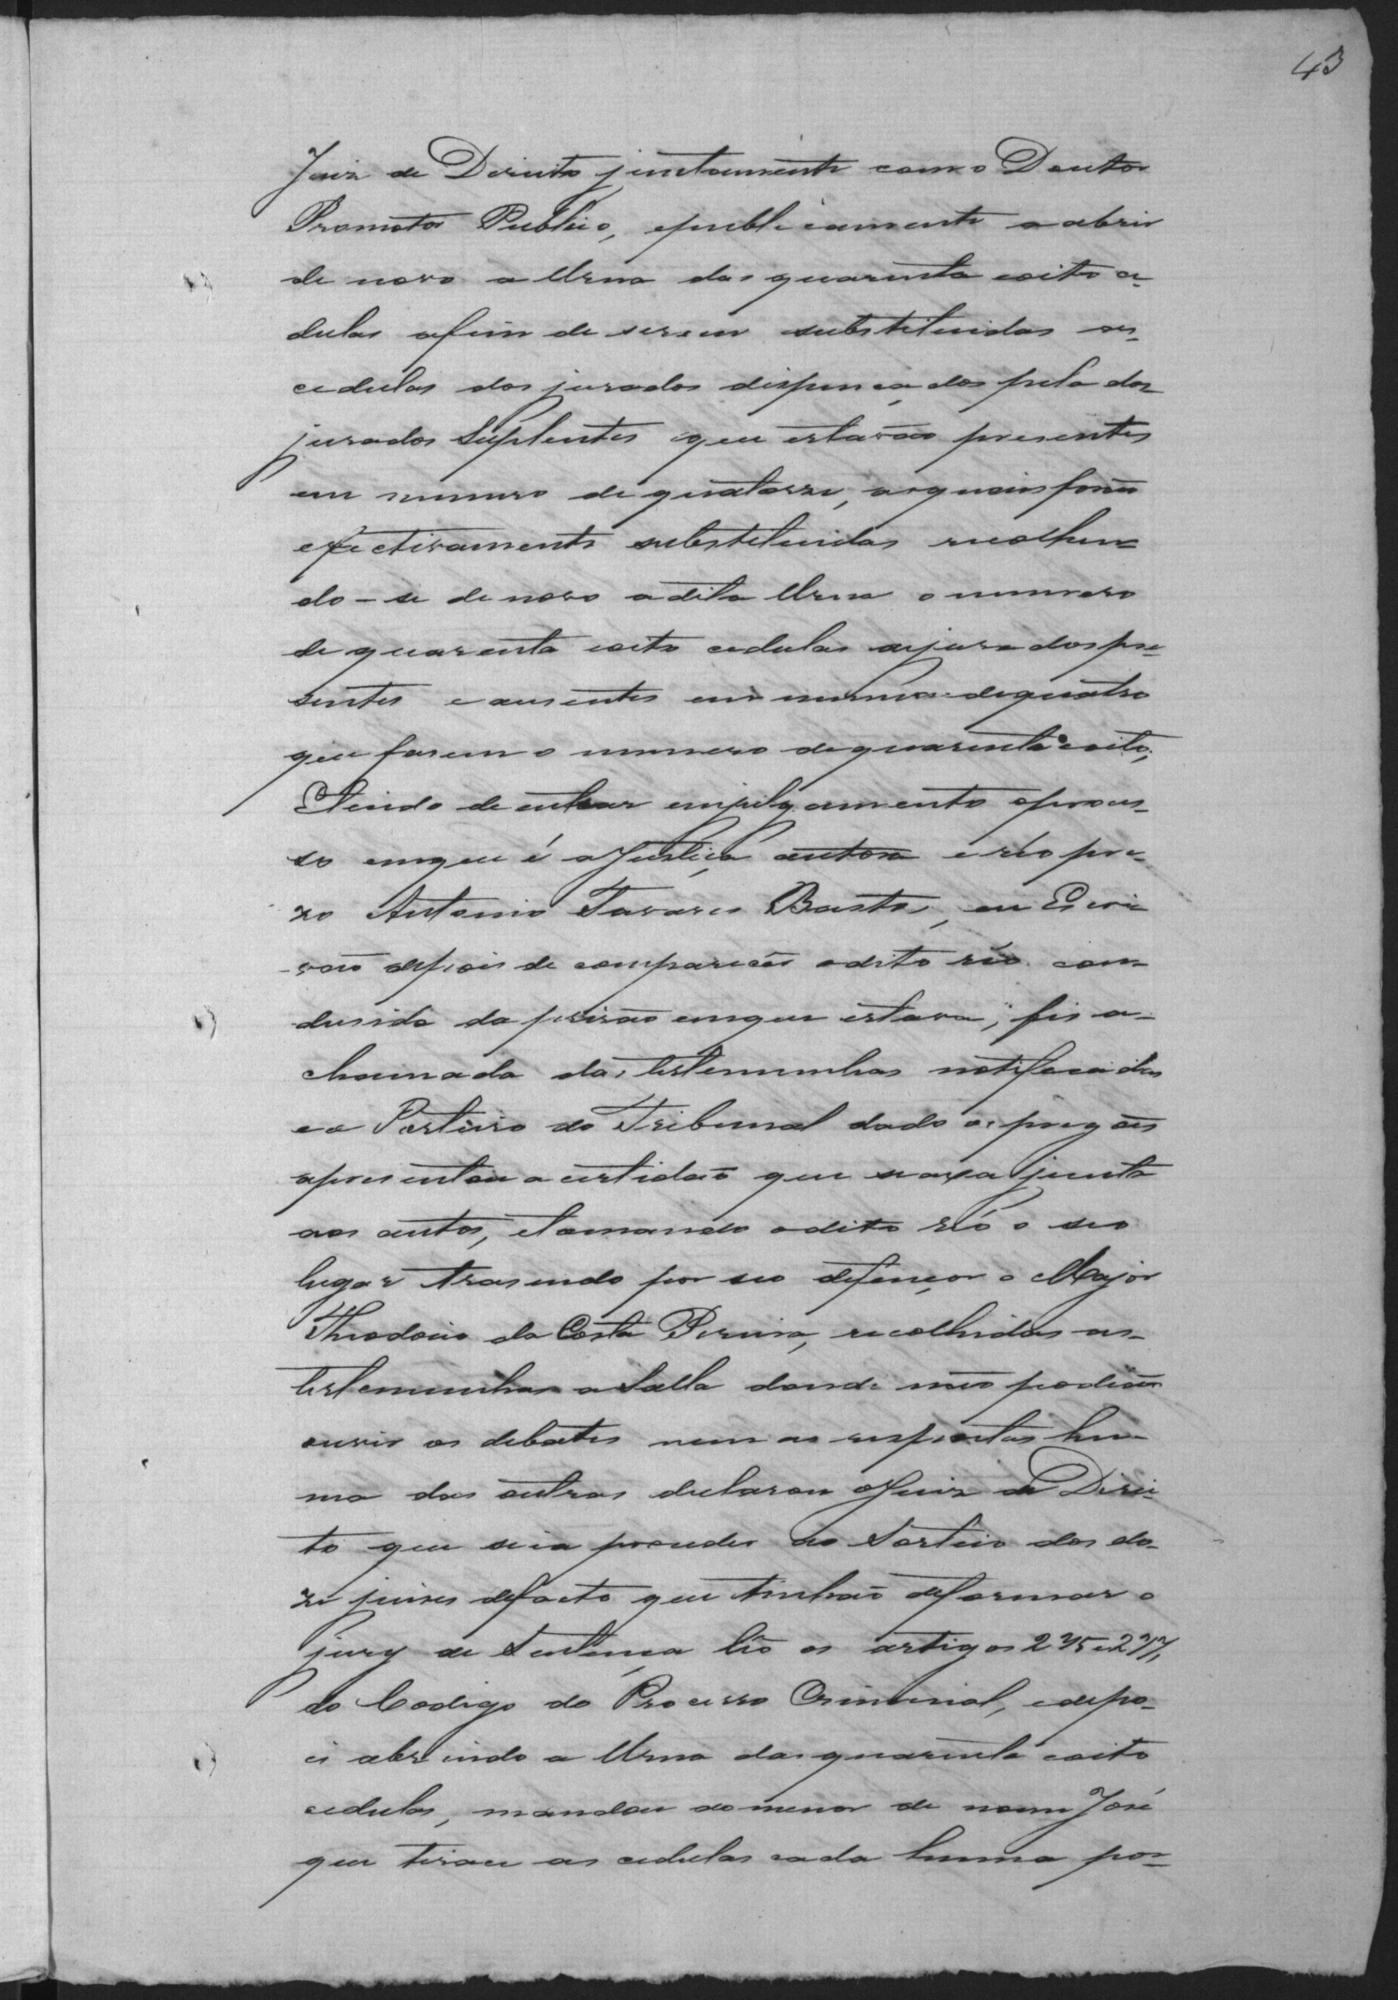 43
Juiz de Direito juntamente com o Doutor
Promotor Publico, epublicamente a abrir
de novo a Urna das quarenta eoito ce-
dulas afim de serem substituidas as
cedulas dos jurados dispençados pela dos
jurados Suplentes que estavão presentes
em numero de quatorze, as quais forão
efectivamente substituidas recolhen-
do-se de novo a dita Urna o numero
de quarenta eoito cedulas dejurados pre-
sentes e ausentes em numero dequatro
que fasem o numero dequarenta eoito,
Etendo de entrar emjulgamento oproces-
so emque é a Justiça autora e réo pre-
zo Antonio Tavares Bastos, eu Escri-
vão depois de comparecer odito réo con-
dusido da prizão emque estava, fis a
chamada das testemunhas notificadas
e o Porteiro do Tribunal dado os pregões
apresentou a certidão que se axa junta
aos autos, etomando odito réo o seo
lugar trasendo por seo defençor o Major
Theodosio da Costa Pereira, recolhidas as
testemunhas a Salla donde não podião
ouvir os debates nem as respostas hu-
ma das outras declarou o Juiz de Direi-
to que se ia proceder ao Sorteio dos do-
ze juizes defacto que tinhão deformar o
jury de Sentença lêo os artigos 275 e 277,
do Codigo do Processo Criminal, edepo-
is abrindo a Urna das quarenta eoito
cedulas, mandou ao menor de nome José
que tirace as cedulas cada huma por